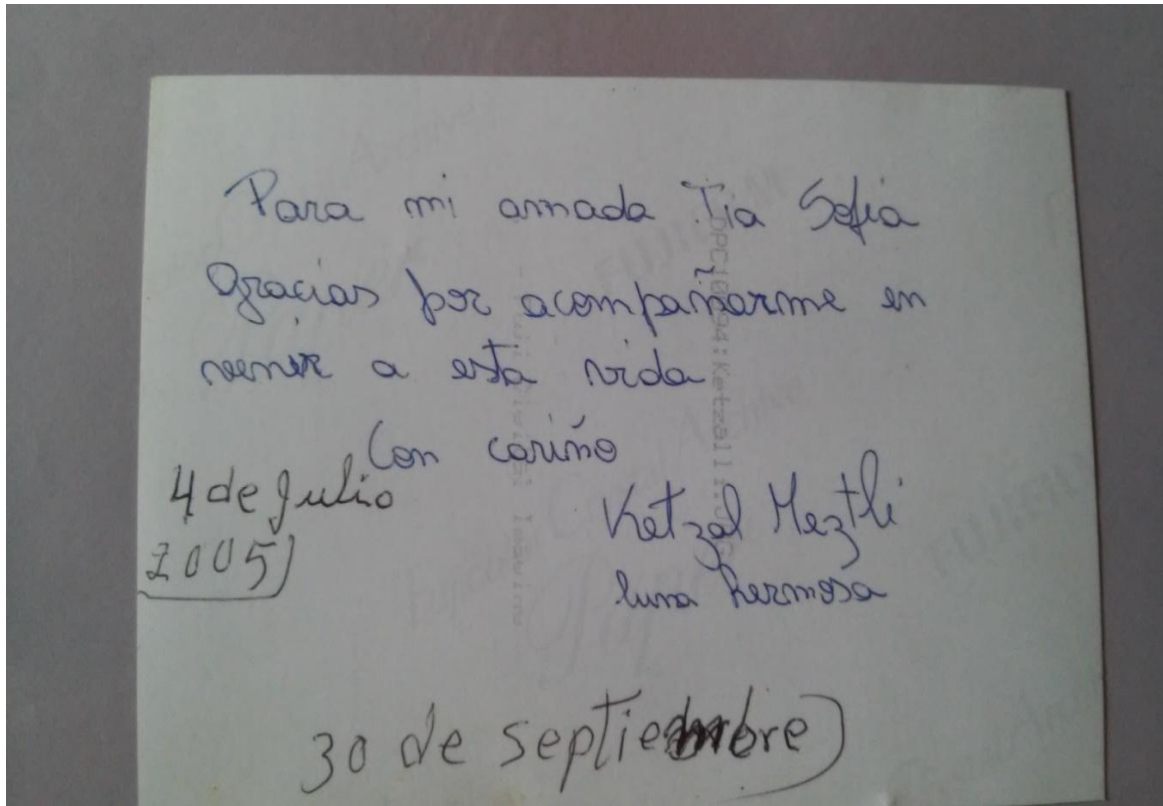 Para mi amada Tia Sofia
Gracias por acompañarme en
venir a esta vida
Con cariño
4 de Julio
2005
Ketzal Meztli
luna hermosa
30 de septiembre